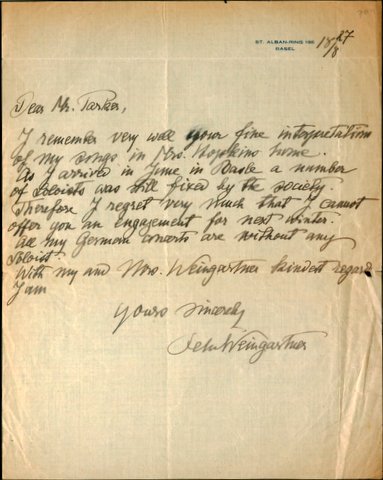 ST. ALBAN-RING
BASEL
18/8 27
Dear Mr. Parker,
I remember very well your fine interpretation
of my songs in Mrs. Hopkins home.
As I arrived in June in Basle a number
of soloists was still fixed by the society.
Therefore I regret very much that I cannot
offer you an engagement for next winter.
All my German concerts are without any
soloist.
With my and Mrs. Weingartner kindest regards
I am
Yours sincerely
Weingartner